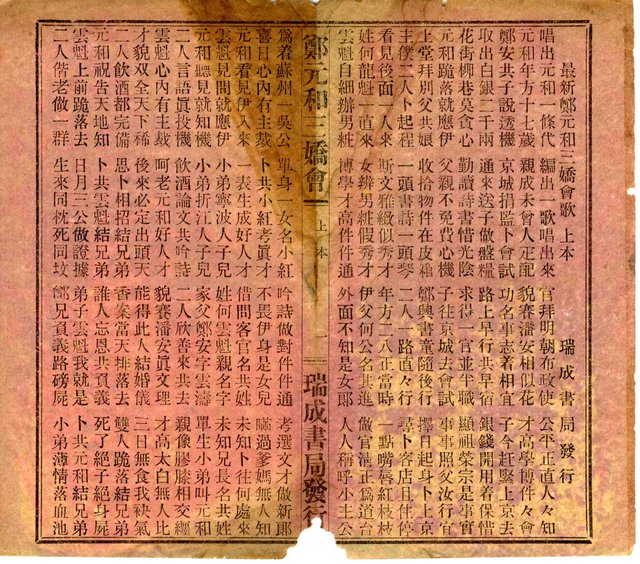 最新鄭元和三嬌會歌 上本 瑞成書局 發行
唱出元和一條代 編出一歌唱出來 官拜明朝布政使 公平正直人々知
元和年方十七歲 親成未曾人定配 貌賽潘安相似花 才高學博件々會
鄭安共子說透機 京城捐監卜會試 功名事志着相宜 子今赶緊上京去
取出白銀二千兩 通來送子做盤糧 路上早行共早宿 銀錢開用着保惜
花街柳巷莫貪心 勤讀詩書惜光陰 求得一官並半職 顯祖榮宗是事實
元和跪落就應伊 父親不免費心機 子往京城去會試 事事照父汝行宜
上堂拜別父共娘 收拾物件在皮箱 鄭興書童隨後行 擇日起身卜上京
主僕二人卜起程 一頭書詩一頭琴 二人一路直々行 尋卜客店且住停
看見後面一人來 斯文雅緻似秀才 年方二八正當時 一點嘴唇紅枝枝
姓何龍魁一直來 女辨男粧假秀才 伊父何公名其進 做官清正為道台
雲魁自細辦男粧 博學才高件件通 外面不知是女郎 人人稱呼小主公
鄭元和三嬌會 上本 一 瑞成書局發行
為着蘇州一吳公 單身一女名小紅 吟詩做對件件通 考選文才做新郎
喜日心內有主裁 卜共小紅考真才 不畏伊身是女兒 瞞過爹媽無人知
元和看見伊人來 一表生成好人才 借問客官名共姓 未知卜往何處來
雲魁見問就應伊 小弟寧波人子兒 姓何雲魁親名字 未知兄長名共姓
元和聽見就知機 小弟折江人子兒 家父鄭安字雲濤 單生小弟叫元和
二人言語真投機 飲酒論文共吟詩 二人欣善來共去 親像膠膝相交纏
雲魁心內有主裁 呵老元和好人才 貌賽潘安真文理 才高太白無人比
才貌双全天下稀 後來必定出頭天 能得此人結婚儀 三日無食我袂氣
二人飲酒都完備 思卜相招結兄弟 香案當天排落去 雙人跪落結兄弟
元和祝告天地知 卜共雲魁結兄弟 誰人忘恩共負義 死了絕子絕身屍
雲魁上前跪落去 日月三公做證據 弟子雲魁我就是 卜共元和結兄弟
二人偕老做一群 生來同枕死同墳 鄭兄負義路磅屍 小弟薄情落血池